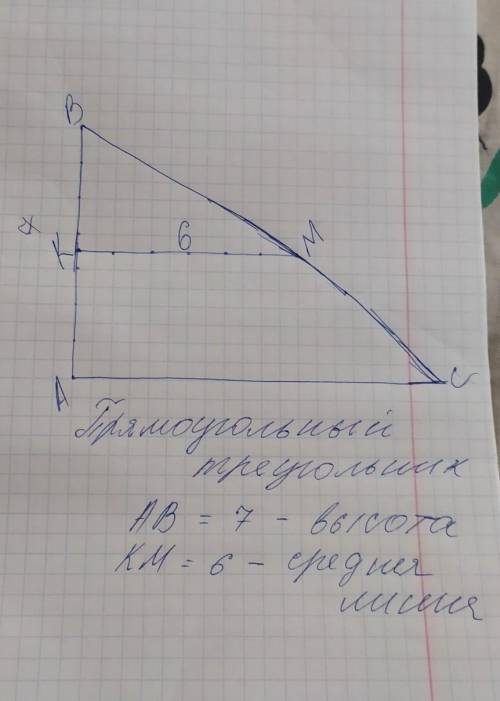 В
6
М
К
А
С
Прямоугольный
треугольник
АВ = 7 - высота
КМ = 6 - средняя
линия